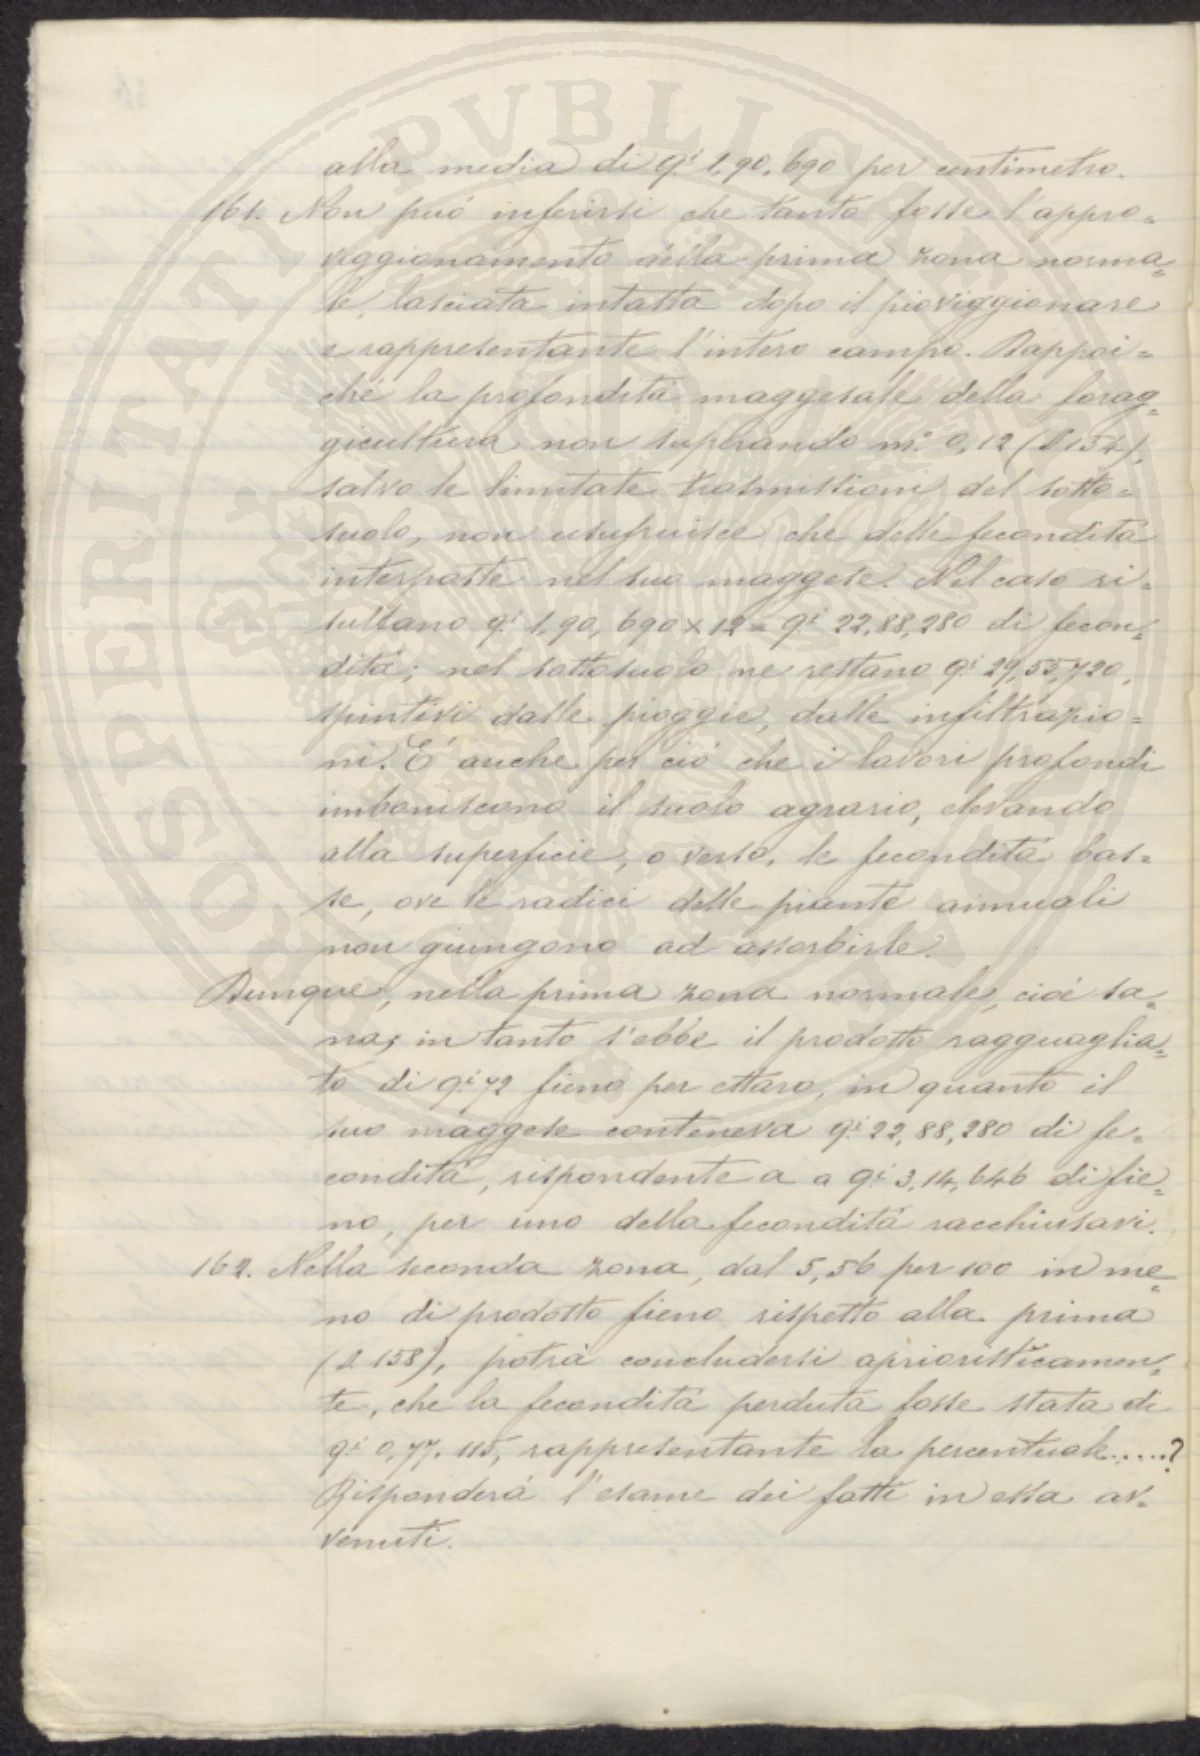 alla media di q.i 1,90,690 per centimetro.
161. Non può inferirsi che tanta fosse l'appro=
viggionamento della prima zona norma=
le, lasciata intatta dopo il pioviggionare
e rappresentante l'intero campo. Dappoi=
ché la profonditá maggesale della forag=
gicultura non superando m.i 0,12 (§ 154),
salvo le limitate trasmissioni del sotto=
suolo, non usufruisce che delle feconditá
intersparte nel suo maggese. Nel caso ri=
sultano q.i 1,90,690 x 12 = q.i 22,88,280 di fecon=
ditá; nel sottosuolo ne restano q.i 29,55,720,
spintivi dalle pioggie, dalle infiltrazio=
ni. É anche per ció che i lavori profondi
imboniscono il suolo agrario, elevando
alla superficie, o verso, le feconditá bas=
se, ove le radici delle piante annuali
non giungono ad assorbirle.
Dunque, nella prima zona normale, cioé sa=
na, in tanto s'ebbe il prodotto ragguaglia=
to di q.i 72 fieno per ettaro, in quanto il
suo maggese conteneva q.i 22,88,280 di fe=
conditá, rispondente a a q.i 3,14,646 di fie=
no, per uno della feconditá racchiusavi.
162. Nella seconda zona, dal 5,56 per 100 in me=
no di prodotto fieno rispetto alla prima
(§ 158), potrá concludersi aprioristicamen=
te, che la feconditá perduta fosse stata di
q.i 0,77,115, rappresentante la percentuale.....?
Risponderá l'esame dei fatti in essa av=
venuti.
PROSPERITATI PVBLICAE